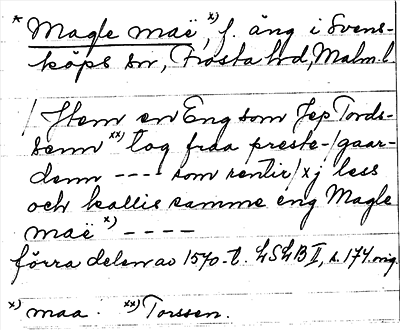 * Magle maë, x) f. äng i Svens-
köps sn, Frosta hd, Malm. l
/ Jtem en Eng som Jep Tords-
senn xx) tog fraa preste-/gaar-
denn ---- som rentir/xj less
och kallis samme eng Magle
maë x) ----
förra delen av 1570-t. LSLB II, s. 174. orig.
x) maa. xx) Torssen.